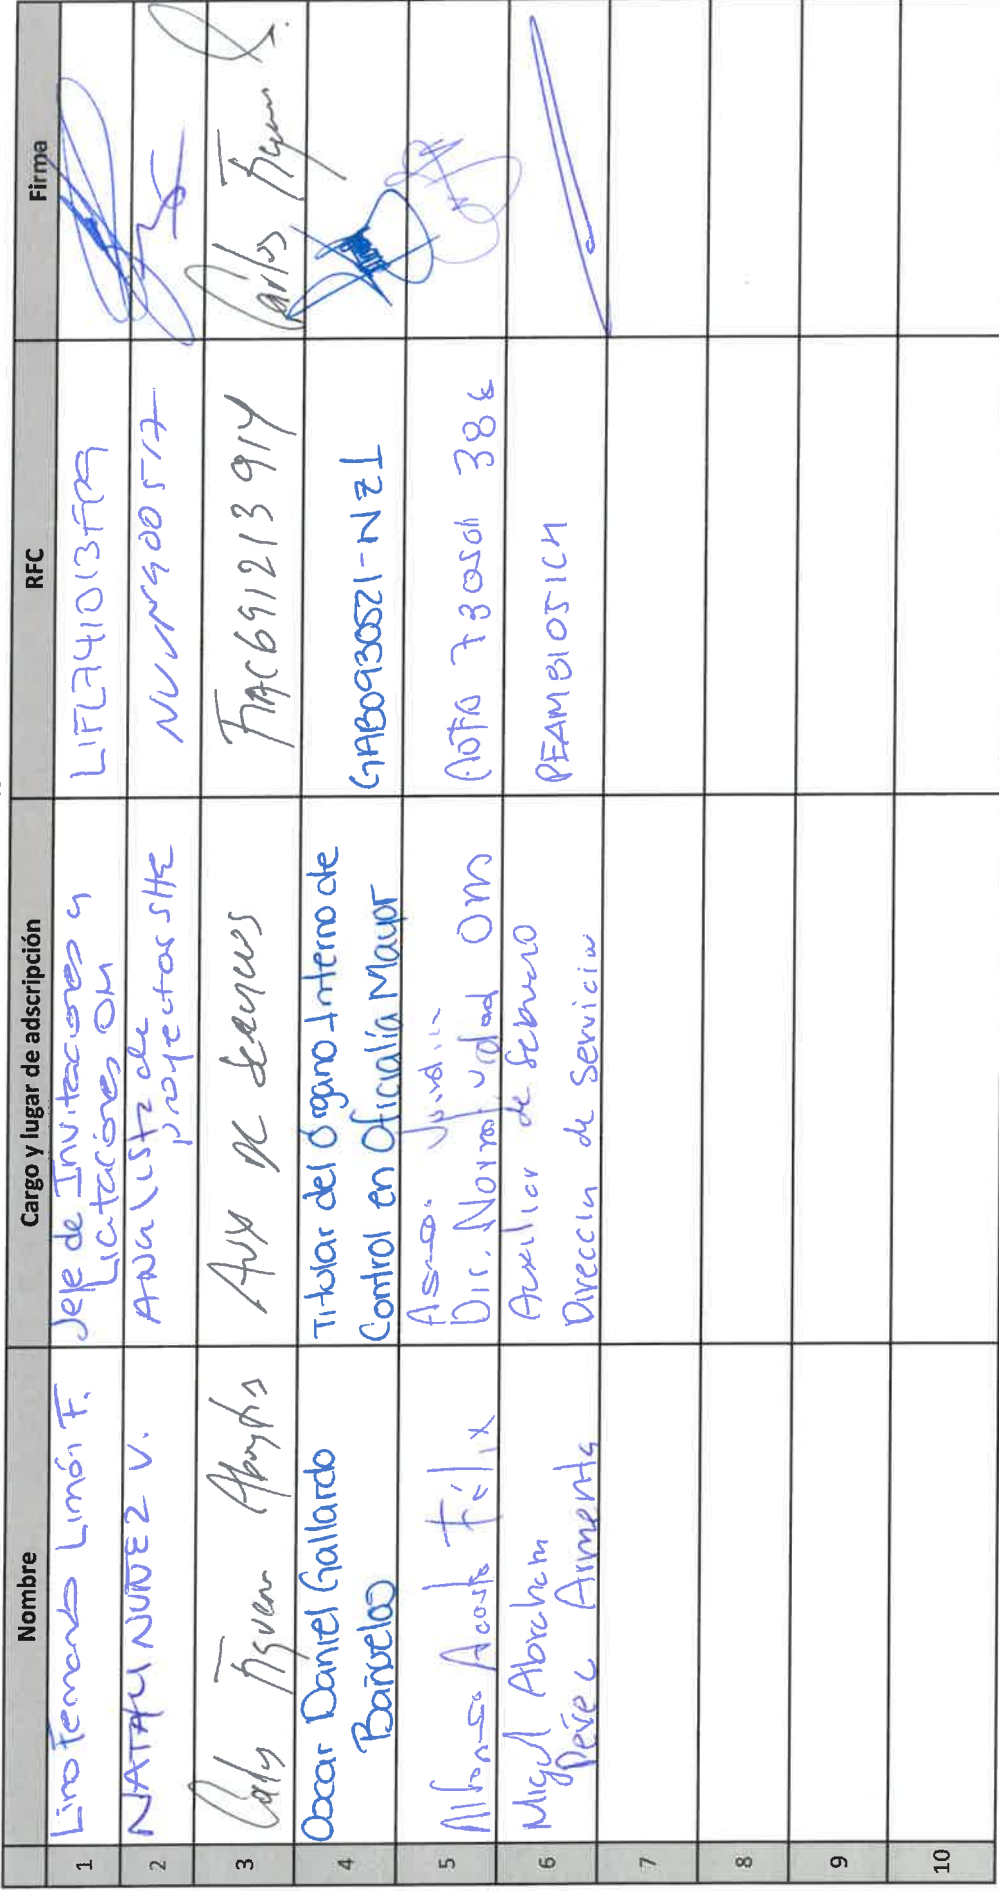 Nombre
Cargo y lugar de adscripción
RFC
Firma
1
Lino Fernando Limón F.
Jefe de Invitaciones y
Licitaciones OM
LIFL741013
2
NATALI NUÑEZ V.
ANalista de
proyectos SHE
3
Carlos Figueroa
Aux de
Carlos Figueroa
4
Oscar Daniel Gallardo
Bañuelos
Titular del Órgano Interno de
Control en Oficialía Mayor
GABO930521-NZ1
5
Alfonso Acosta Félix
Dir. Normatividad OM
6
Miguel Abraham
Perez Armenta
Auxiliar de
Dirección de Servicio
PEAM81051CH
7
8
9
10